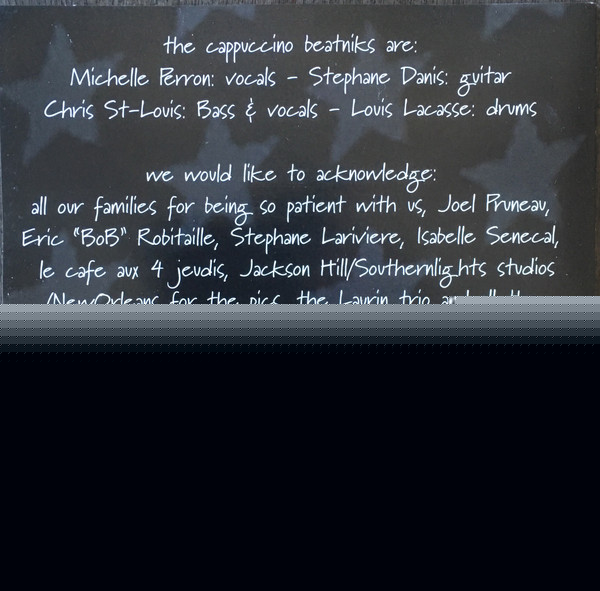 the cappuccino beatniks are:
Michelle Perron: vocals - Stephane Danis: guitar
Chris St-Louis: Bass & vocals - Louis Lacasse: drums
we would like to acknowledge:
all our families for being so patient with us, Joel Pruneau,
Eric "BoB" Robitaille, Stephane Lariviere, Isabelle Senecal,
le cafe aux 4 jeudis, Jackson Hill/Southernlights studios
/NewOrleans for the pics, the Laurin trio